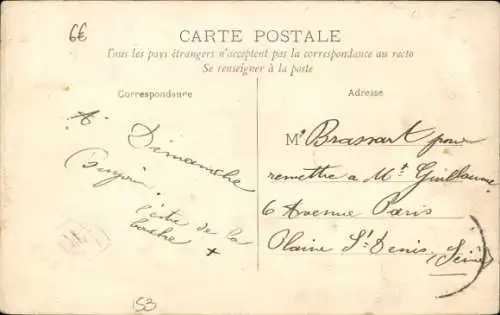 6€
CARTE POSTALE
Tous les pays étrangers n'acceptent pas la correspondance au recto
Se renseigner à la poste
Correspondance
Adresse
A Dimanche
de la
x
Mr Brassart pour
remettre a Mr Guillaume
6 Avenue Paris
Plaine St Denis, Seine
153